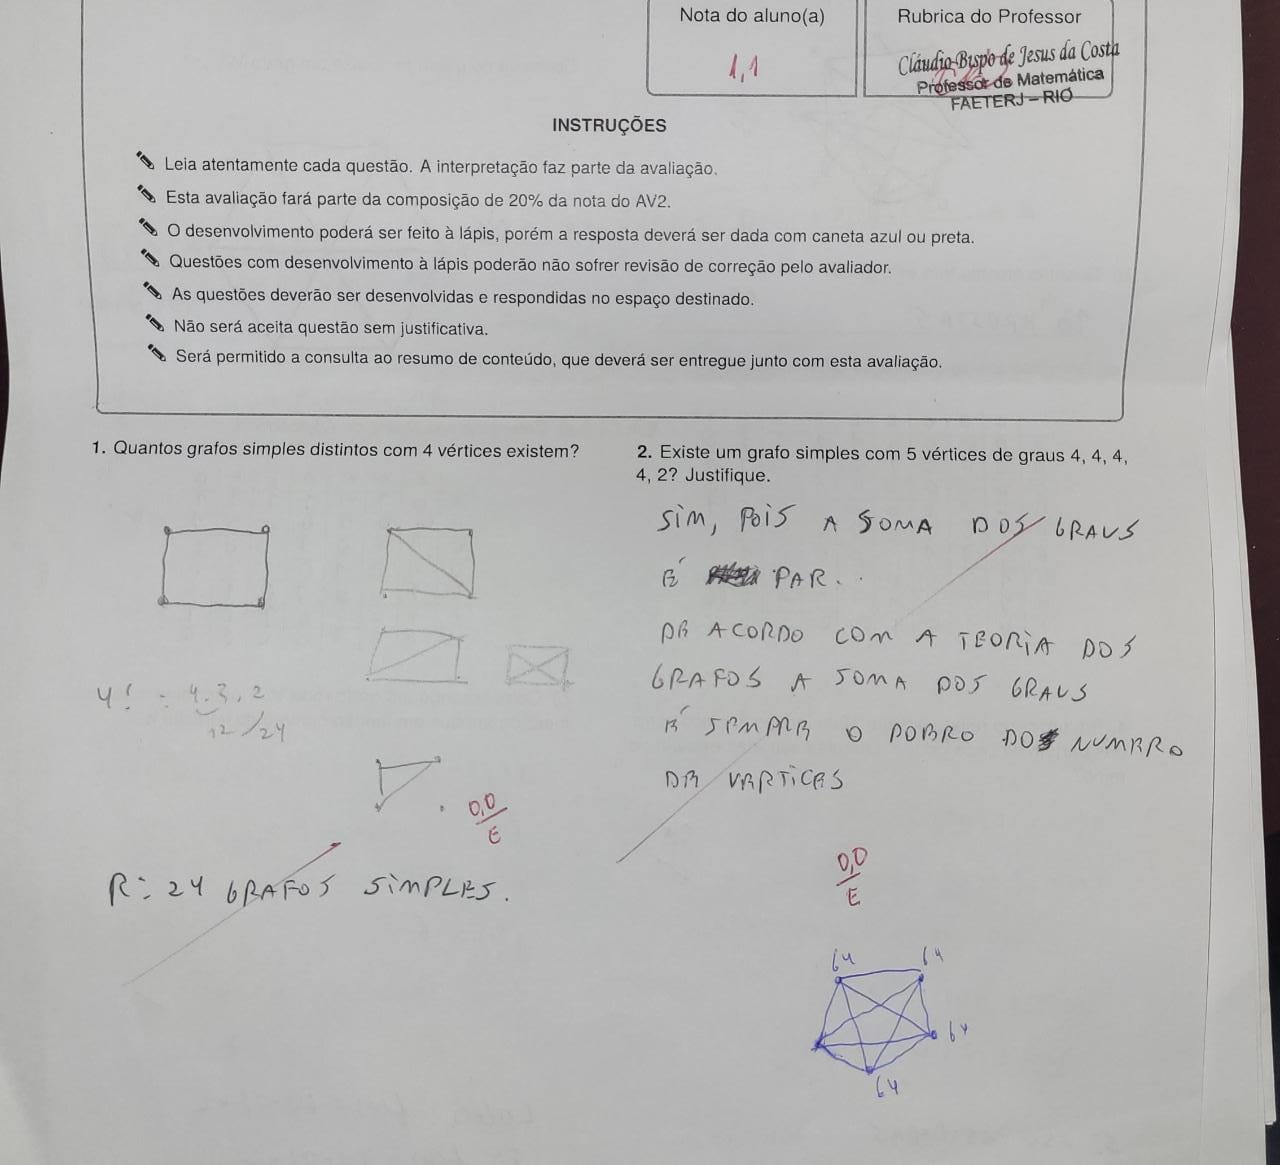 Nota do aluno(a)
1,1
Rubrica do Professor
Cláudio Bispo de Jesus da Costa
Professor de Matemática
FAETERJ – RIO
INSTRUÇÕES
Leia atentamente cada questão. A interpretação faz parte da avaliação.
Esta avaliação fará parte da composição de 20% da nota do AV2.
O desenvolvimento poderá ser feito à lápis, porém a resposta deverá ser dada com caneta azul ou preta.
Questões com desenvolvimento à lápis poderão não sofrer revisão de correção pelo avaliador.
As questões deverão ser desenvolvidas e respondidas no espaço destinado.
Não será aceita questão sem justificativa.
Será permitido a consulta ao resumo de conteúdo, que deverá ser entregue junto com esta avaliação.
1. Quantos grafos simples distintos com 4 vértices existem?
4! = 4.3.2
12 / 24
0,0
E
R: 24 GRAFOS SIMPLES.
2. Existe um grafo simples com 5 vértices de graus 4, 4, 4,
4, 2? Justifique.
SIM, POIS A SOMA DOS GRAUS
É PAR.
DE ACORDO COM A TEORIA DOS
GRAFOS A SOMA DOS GRAUS
É SEMPRE O DOBRO DO NUMERO
DE VERTICES
0,0
E
G4 G4
G4
G4